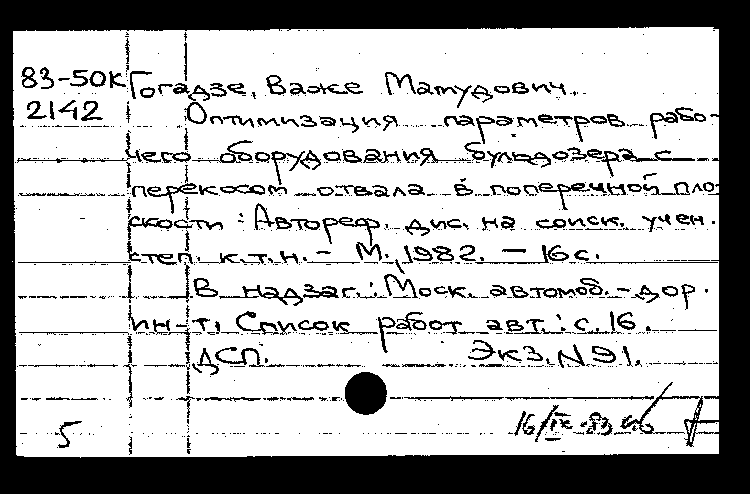 83-50К Гогадзе, Важе Мамудович.
2142 Оптимизация параметров рабо-
чего оборудования бульдозера с
перекосом отвала в поперечной пло-
скости : Автореф. дис. на соиск. учен.
степ. к.т.н. - М., 1982. - 16 с.
В надзаг.: Моск. автомоб.-дор.
ин-т. Список работ авт.: с. 16.
ДСП. Экз. N 91.
5 16/IX-83